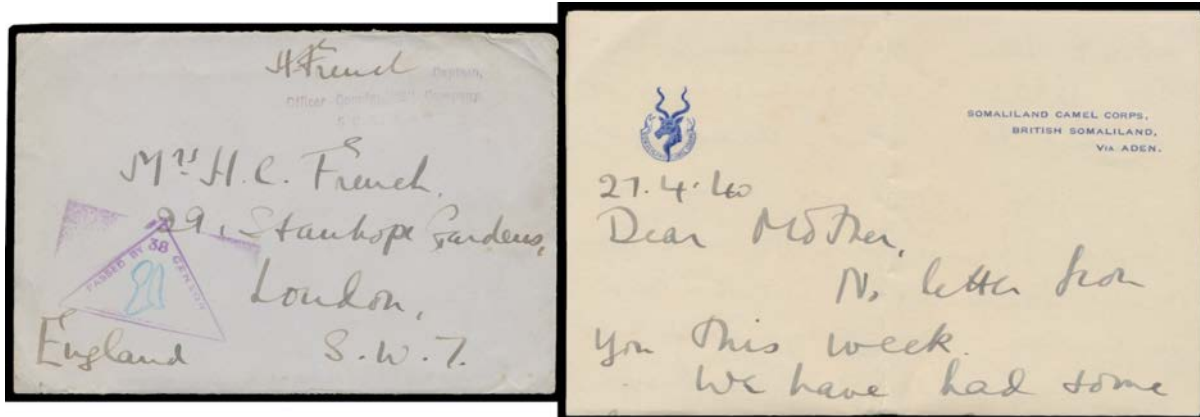 H French
Captain,
Officer Company,
Mrs H. C. French.
29, Stanhope Gardens,
London,
England S. W. 7.
PASSED BY 38 CENSOR
SOMALILAND CAMEL CORPS,
BRITISH SOMALILAND,
VIA ADEN.
27.4.40
Dear Mother,
No letter from
you this week.
We have had some